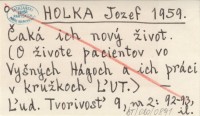 HOLKA Jozef 1959.
Čaká ich nový život.
(O živote pacientov vo
Vyšných Hágoch a ich práci
v krúžkoch ĽUT.) -
Ľud. Tvorivosť 9, nr 2: 92-93,
il.